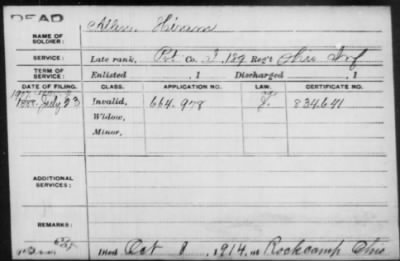 DEAD
NAME OF SOLDIER: Allen, Hiram
SERVICE: Late rank, Pvt Co. I, 189 Reg't Ohio Inf
TERM OF SERVICE: Enlisted , 1 Discharged , 1
DATE OF FILING. CLASS. APPLICATION NO. LAW. CERTIFICATE NO.
1888, July 23 Invalid, 664.978 834641
Widow,
Minor,
ADDITIONAL SERVICES:
REMARKS:
Died Oct 8, 1914, at Rockcamp Ohio